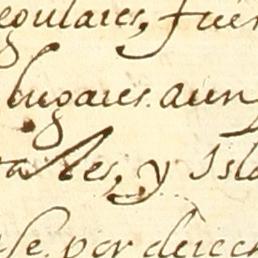 egulares, fuer
lugares aun
tes, y Isla
se por derech